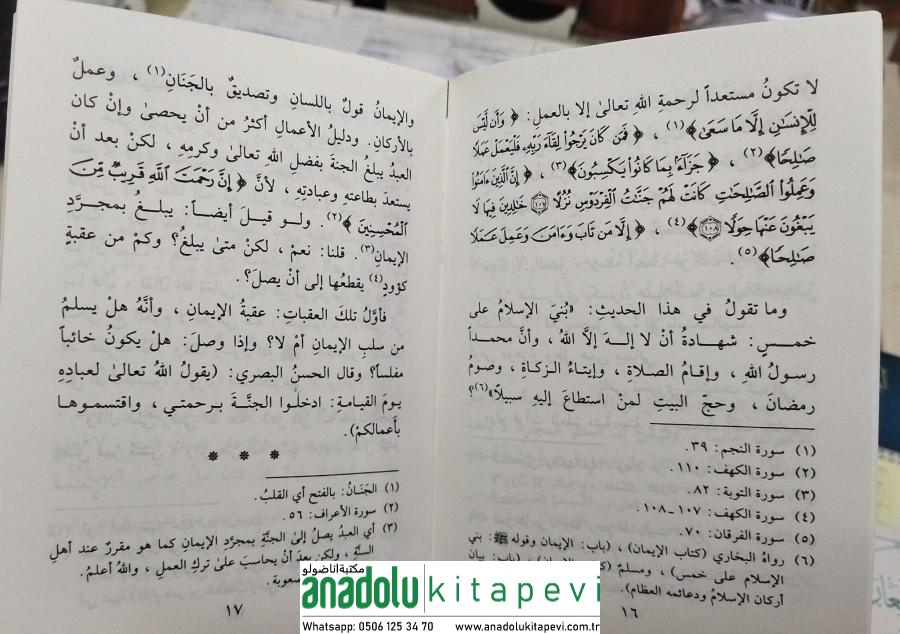 لا تكونُ مستعداً لرحمةِ اللهِ تعالىٰ إلا بالعملِ: ﴿ وَأَن لَّيْسَ
لِلْإِنسَـٰنِ إِلَّا مَا سَعَىٰ﴾(١) ، ﴿ فَمَن كَانَ يَرْجُوا۟ لِقَآءَ رَبِّهِۦ فَلْيَعْمَلْ عَمَلًا
صَـٰلِحًا﴾(٢) ، ﴿ جَزَآءًۢ بِمَا كَانُوا۟ يَكْسِبُونَ﴾(٣) ، ﴿ إِنَّ ٱلَّذِينَ ءَامَنُوا۟
وَعَمِلُوا۟ ٱلصَّـٰلِحَـٰتِ كَانَتْ لَهُمْ جَنَّـٰتُ ٱلْفِرْدَوْسِ نُزُلًا ۝١٠٧ خَـٰلِدِينَ فِيهَا لَا
يَبْغُونَ عَنْهَا حِوَلًا ۝١٠٨﴾(٤) ، ﴿ إِلَّا مَن تَابَ وَءَامَنَ وَعَمِلَ عَمَلًا
صَـٰلِحًا﴾(٥) .
وما تقولُ في هذا الحديثِ: «بُنيَ الإسلامُ على
خمسٍ: شهادةُ أنْ لا إلـهَ إلاَّ اللهُ ، وأنَّ محمداً
رسولُ اللهِ ، وإقامُ الصلاةِ ، وإيتاءُ الزكاةِ ، وصومُ
رمضانَ ، وحجّ البيتِ لمنْ استطاعَ إليهِ سبيلاً»(٦)؟
(١) سورة النجم: ٣٩ .
(٢) سورة الكهف: ١١٠ .
(٣) سورة التوبة: ٨٢ .
(٤) سورة الكهف: ١٠٧-١٠٨ .
(٥) سورة الفرقان: ٧٠ .
(٦) رواهُ البخاري (كتاب الإيمان) ، (باب: الإيمان وقوله ﷺ: بني
الإسلام على خمس) ، ومسلم (كتاب الإيمان) ، (باب: بيان
أركان الإسلام ودعائمه العظام) .
١٦
والإيمانُ قولٌ باللسانِ وتصديقٌ بالجَنَانِ(١) ، وعملٌ
بالأركانِ. ودليلُ الأعمالِ أكثرُ من أنْ يحصىٰ وإنْ كان
العبدُ يبلغُ الجنةَ بفضلِ اللهِ تعالىٰ وكرمِهِ ، لكنْ بعد أنْ
يستعدَ بطاعتهِ وعبادتِهِ ، لأنَّ ﴿ إِنَّ رَحْمَتَ ٱللَّهِ قَرِيبٌ مِّنَ
ٱلْمُحْسِنِينَ ﴾(٢). ولـو قيـلَ أيضـاً: يبلـغُ بمجـرَّدِ
الإيمانِ(٣). قلنا: نعمْ ، لكنْ متىٰ يبلغُ؟ وكمْ من عقبةٍ
كؤودٍ(٤) يقطعُها إلى أنْ يصلَ؟ .
فأوَّلُ تلكَ العقباتِ: عقبةُ الإيمانِ ، وأنَّهُ هلْ يسلمُ
من سلبِ الإيمانِ أمْ لا؟ وإذا وصلَ: هلْ يكونُ خائباً
مفلساً؟ وقال الحسنُ البصري: (يقولُ اللهُ تعالىٰ لعبادِهِ
يومَ القيامةِ: ادخلُوا الجنَّةَ بـرحمتـي ، واقتسمـوهـا
بأعمالكمْ) .
* * *
(١) الجَنَانُ: بالفتح أي القلبُ .
(٢) سورة الأعراف: ٥٦ .
(٣) أي العبدُ يصلُ إلىٰ الجنَّةِ بمجرَّدِ الإيمانِ كما هو مقررٌ عند أهلِ
السنَّةِ ، ولكن بعدَ أنْ يحاسبَ علىٰ تركِ العملِ ، واللهُ أعلمُ .
صعوبة .
١٧
مكتبة اناضولو
anadolu kitapevi
Whatsapp: 0506 125 34 70 www.anadolukitapevi.com.tr